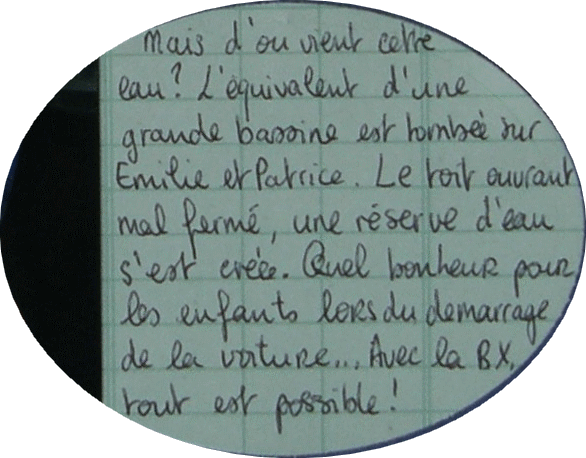 Mais d'ou vient cette
eau? L'équivalent d'une
grande bassine est tombée sur
Emilie et Patrice. Le toit ouvrant
mal fermé, une réserve d'eau
s'est créée. Quel bonheur pour
les enfants lors du demarrage
de la voiture... Avec la BX,
tout est possible!